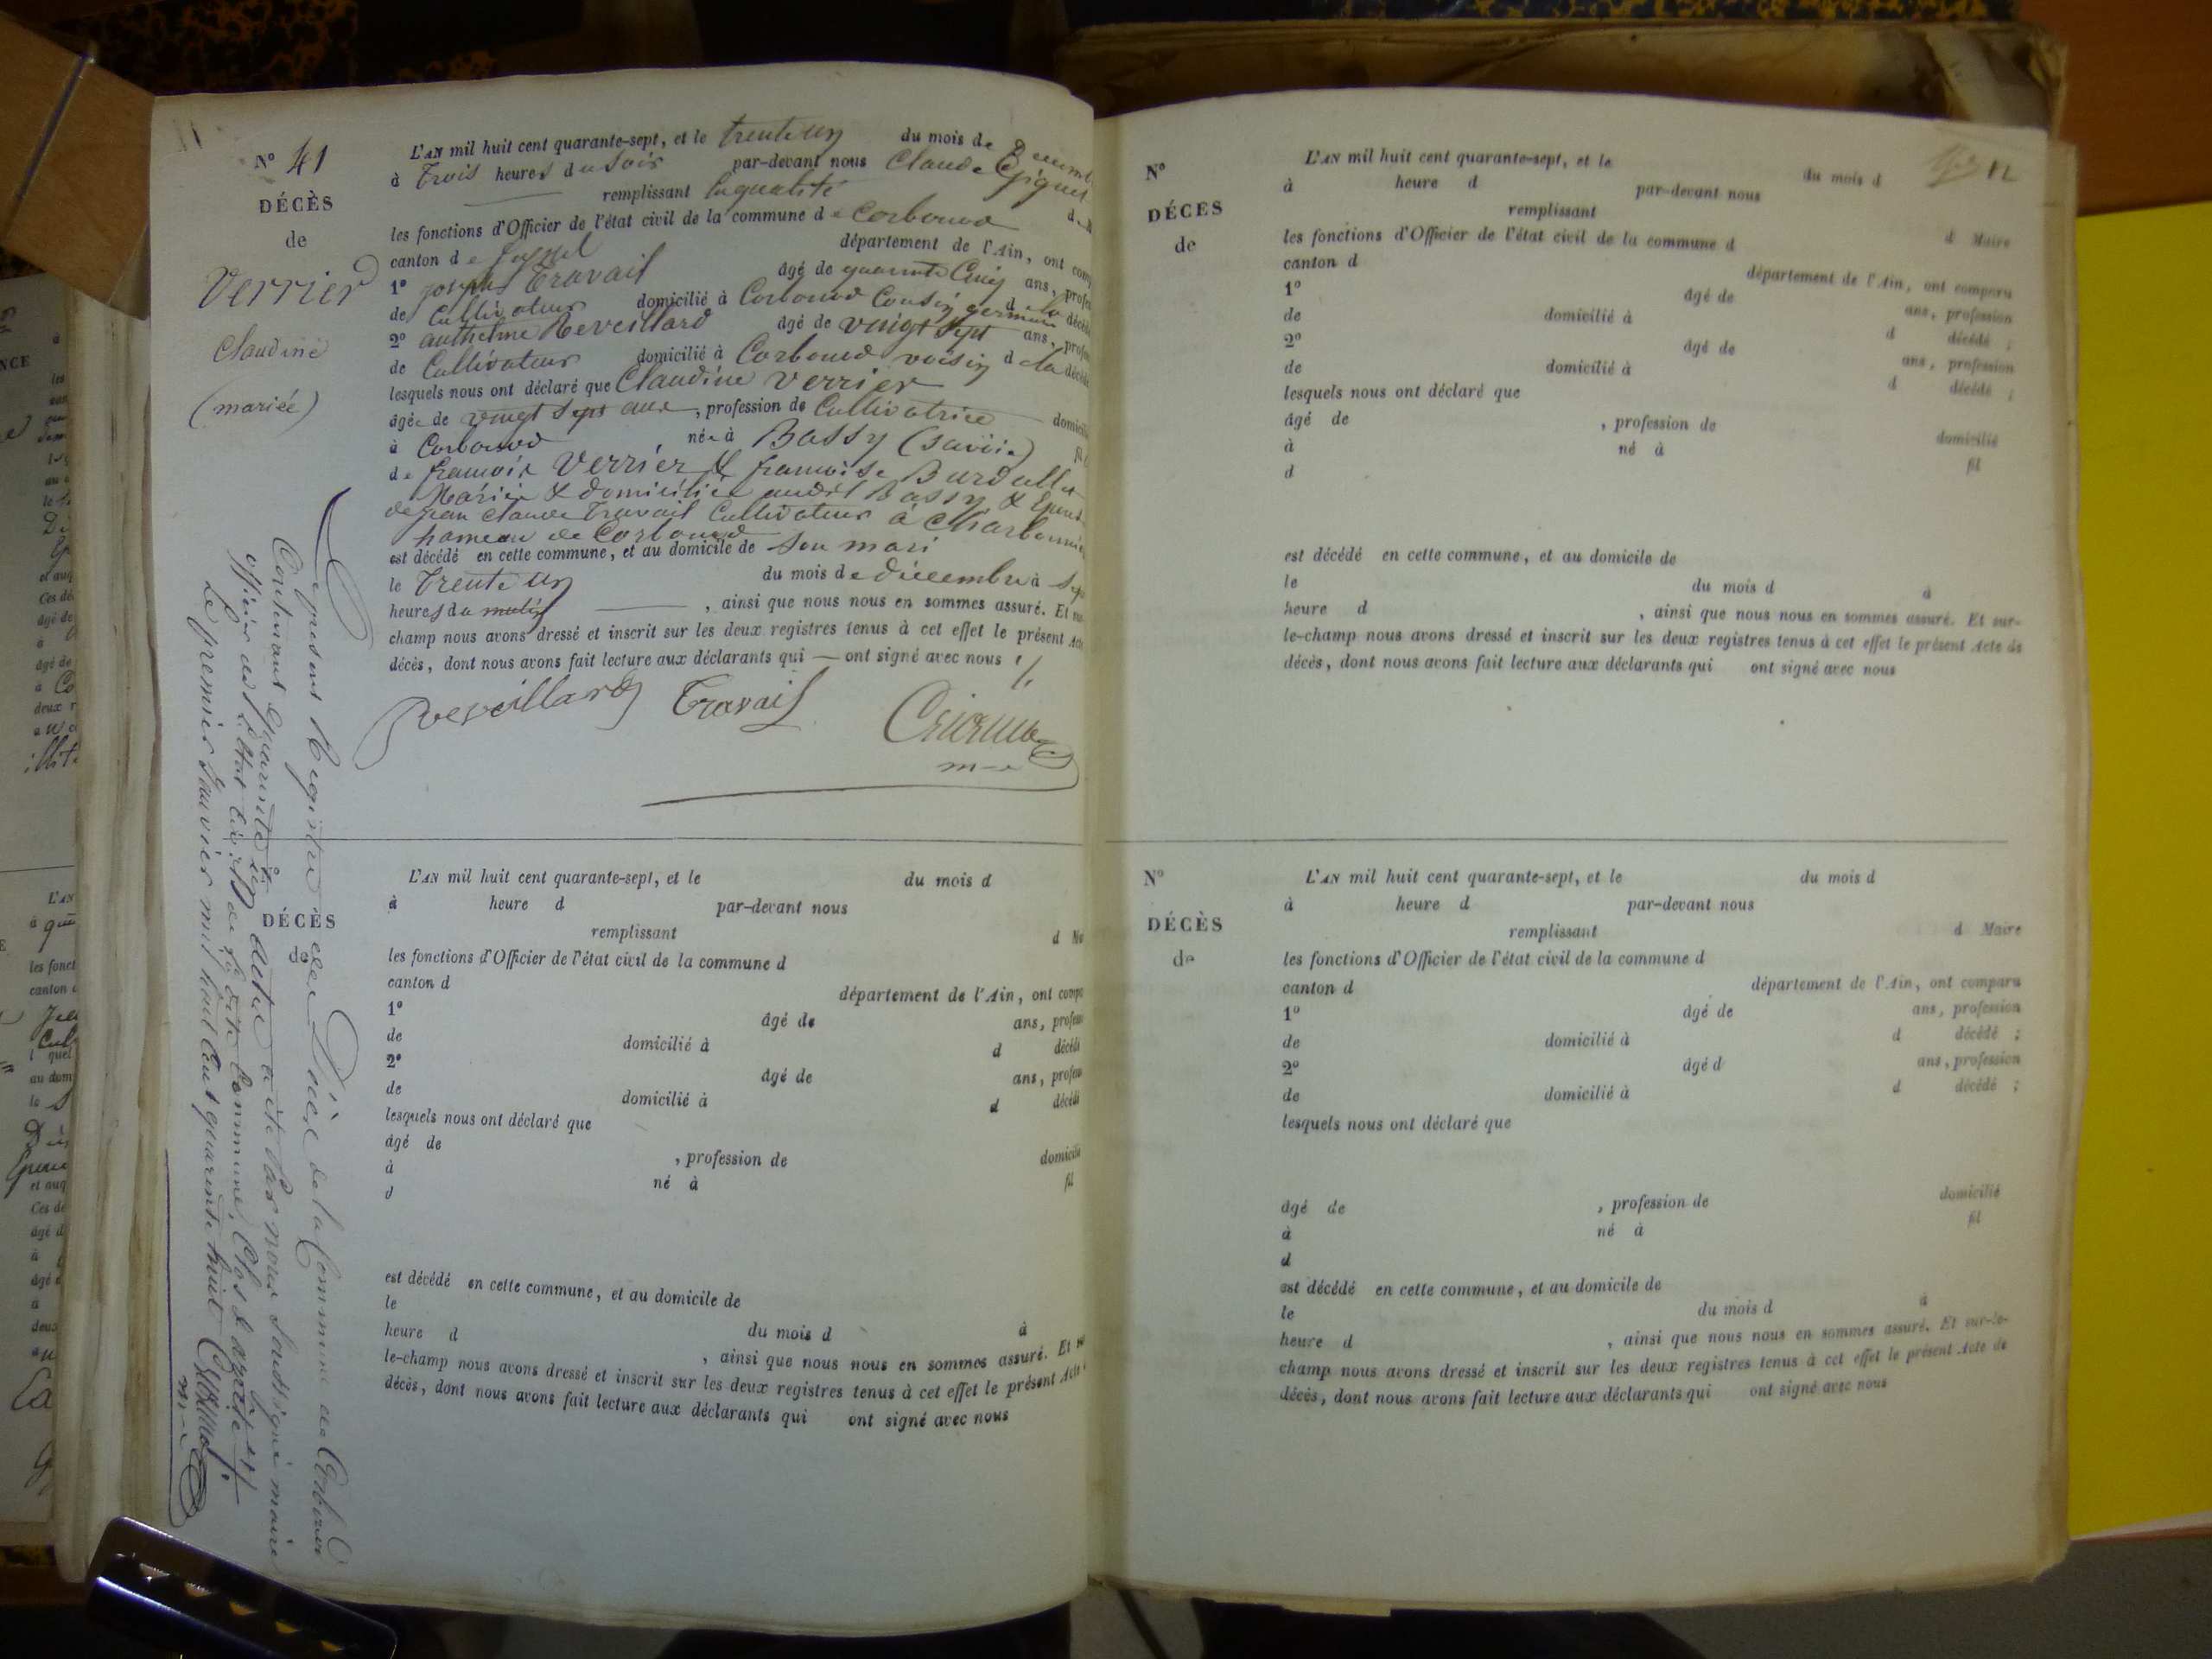 N° 41
DÉCÈS
de
Verrier
Claudine
(mariée)
L'AN mil huit cent quarante-sept, et le trente un du mois de
à Trois heures du soir par-devant nous Claude
remplissant
les fonctions d'Officier de l'état civil de la commune de Corbonod
canton de Seyssel département de l'Ain, ont
1° joseph Travail âgé de quarante Cinq ans,
de Cultivateur domicilié à Corbonod Cousin germain de la
2° anthelme Reveillard âgé de vingt sept ans,
de Cultivateur domicilié à Corbonod voisin de la
lesquels nous ont déclaré que Claudine Verrier
âgée de vingt sept ans, profession de Cultivatrice
à Corbonod, née à Bassy (Savoie)
de françois Verrier & françoise
Mariés & domiciliés audit Bassy &
de jean Claude Travail Cultivateur à
hameau de Corbonod
est décédé en cette commune, et au domicile de son mari
le Trente un du mois de décembre à
heures du matin, ainsi que nous nous en sommes assuré. Et
champ nous avons dressé et inscrit sur les deux registres tenus à cet effet le présent
décès, dont nous avons fait lecture aux déclarants qui — ont signé avec nous
Reveillard Travail
Le présent Registre des Décès de la Commune de Corbonod
Contenant quarante un actes a été par nous soussigné maire
officier de l'état civil de la dite Commune, Clos & arrêté
Le premier janvier mil huit cent quarante huit
DÉCÈS
de
L'AN mil huit cent quarante-sept, et le du mois d
à heure d par-devant nous
remplissant d
les fonctions d'Officier de l'état civil de la commune d
canton d département de l'Ain, ont
1° âgé de ans,
de domicilié à d
2° âgé de ans,
de domicilié à d
lesquels nous ont déclaré que
âgé de , profession de
à né à
d
est décédé en cette commune, et au domicile de
le du mois d à
heure d , ainsi que nous nous en sommes assuré. Et
le-champ nous avons dressé et inscrit sur les deux registres tenus à cet effet le présent
décès, dont nous avons fait lecture aux déclarants qui ont signé avec nous
12
N°
DÉCÈS
de
L'AN mil huit cent quarante-sept, et le du mois d
à heure d par-devant nous
remplissant d Maire
les fonctions d'Officier de l'état civil de la commune d
canton d département de l'Ain, ont comparu
1° âgé de ans, profession
de domicilié à d décédé ;
2° âgé de ans, profession
de domicilié à d décédé ;
lesquels nous ont déclaré que
âgé de , profession de domicilié
à né à fil
d
est décédé en cette commune, et au domicile de
le du mois d à
heure d , ainsi que nous nous en sommes assuré. Et sur-
le-champ nous avons dressé et inscrit sur les deux registres tenus à cet effet le présent Acte de
décès, dont nous avons fait lecture aux déclarants qui ont signé avec nous
N°
DÉCÈS
de
L'AN mil huit cent quarante-sept, et le du mois d
à heure d par-devant nous
remplissant d Maire
les fonctions d'Officier de l'état civil de la commune d
canton d département de l'Ain, ont comparu
1° âgé de ans, profession
de domicilié à d décédé ;
2° âgé d ans, profession
de domicilié à d décédé ;
lesquels nous ont déclaré que
âgé de , profession de domicilié
à né à fil
d
est décédé en cette commune, et au domicile de
le du mois d à
heure d , ainsi que nous nous en sommes assuré. Et sur-le-
champ nous avons dressé et inscrit sur les deux registres tenus à cet effet le présent Acte de
décès, dont nous avons fait lecture aux déclarants qui ont signé avec nous